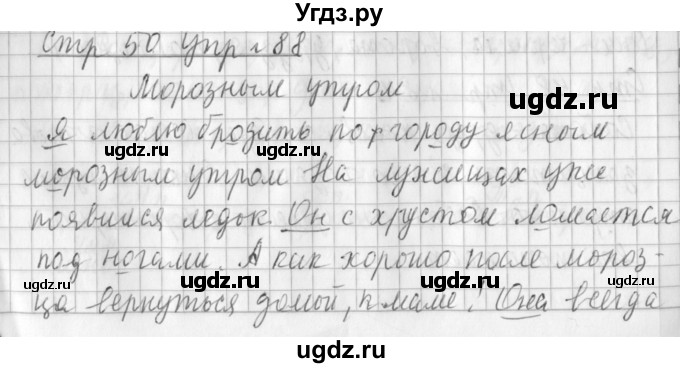 Угдз.ру
Стр 50 Упр 88
Морозным утром
Я люблю бродить по городу ясным
морозным утром На лужицах уже
появился ледок. Он с хрустом ломается
под ногами. А как хорошо после мороз-
ца вернуться домой, к маме! Она всегда
ugdz.ru
ugdz.ru
ugdz.ru
ugdz.ru
ugdz.ru
ugdz.ru
ugdz.ru
ugdz.ru
ugdz.ru